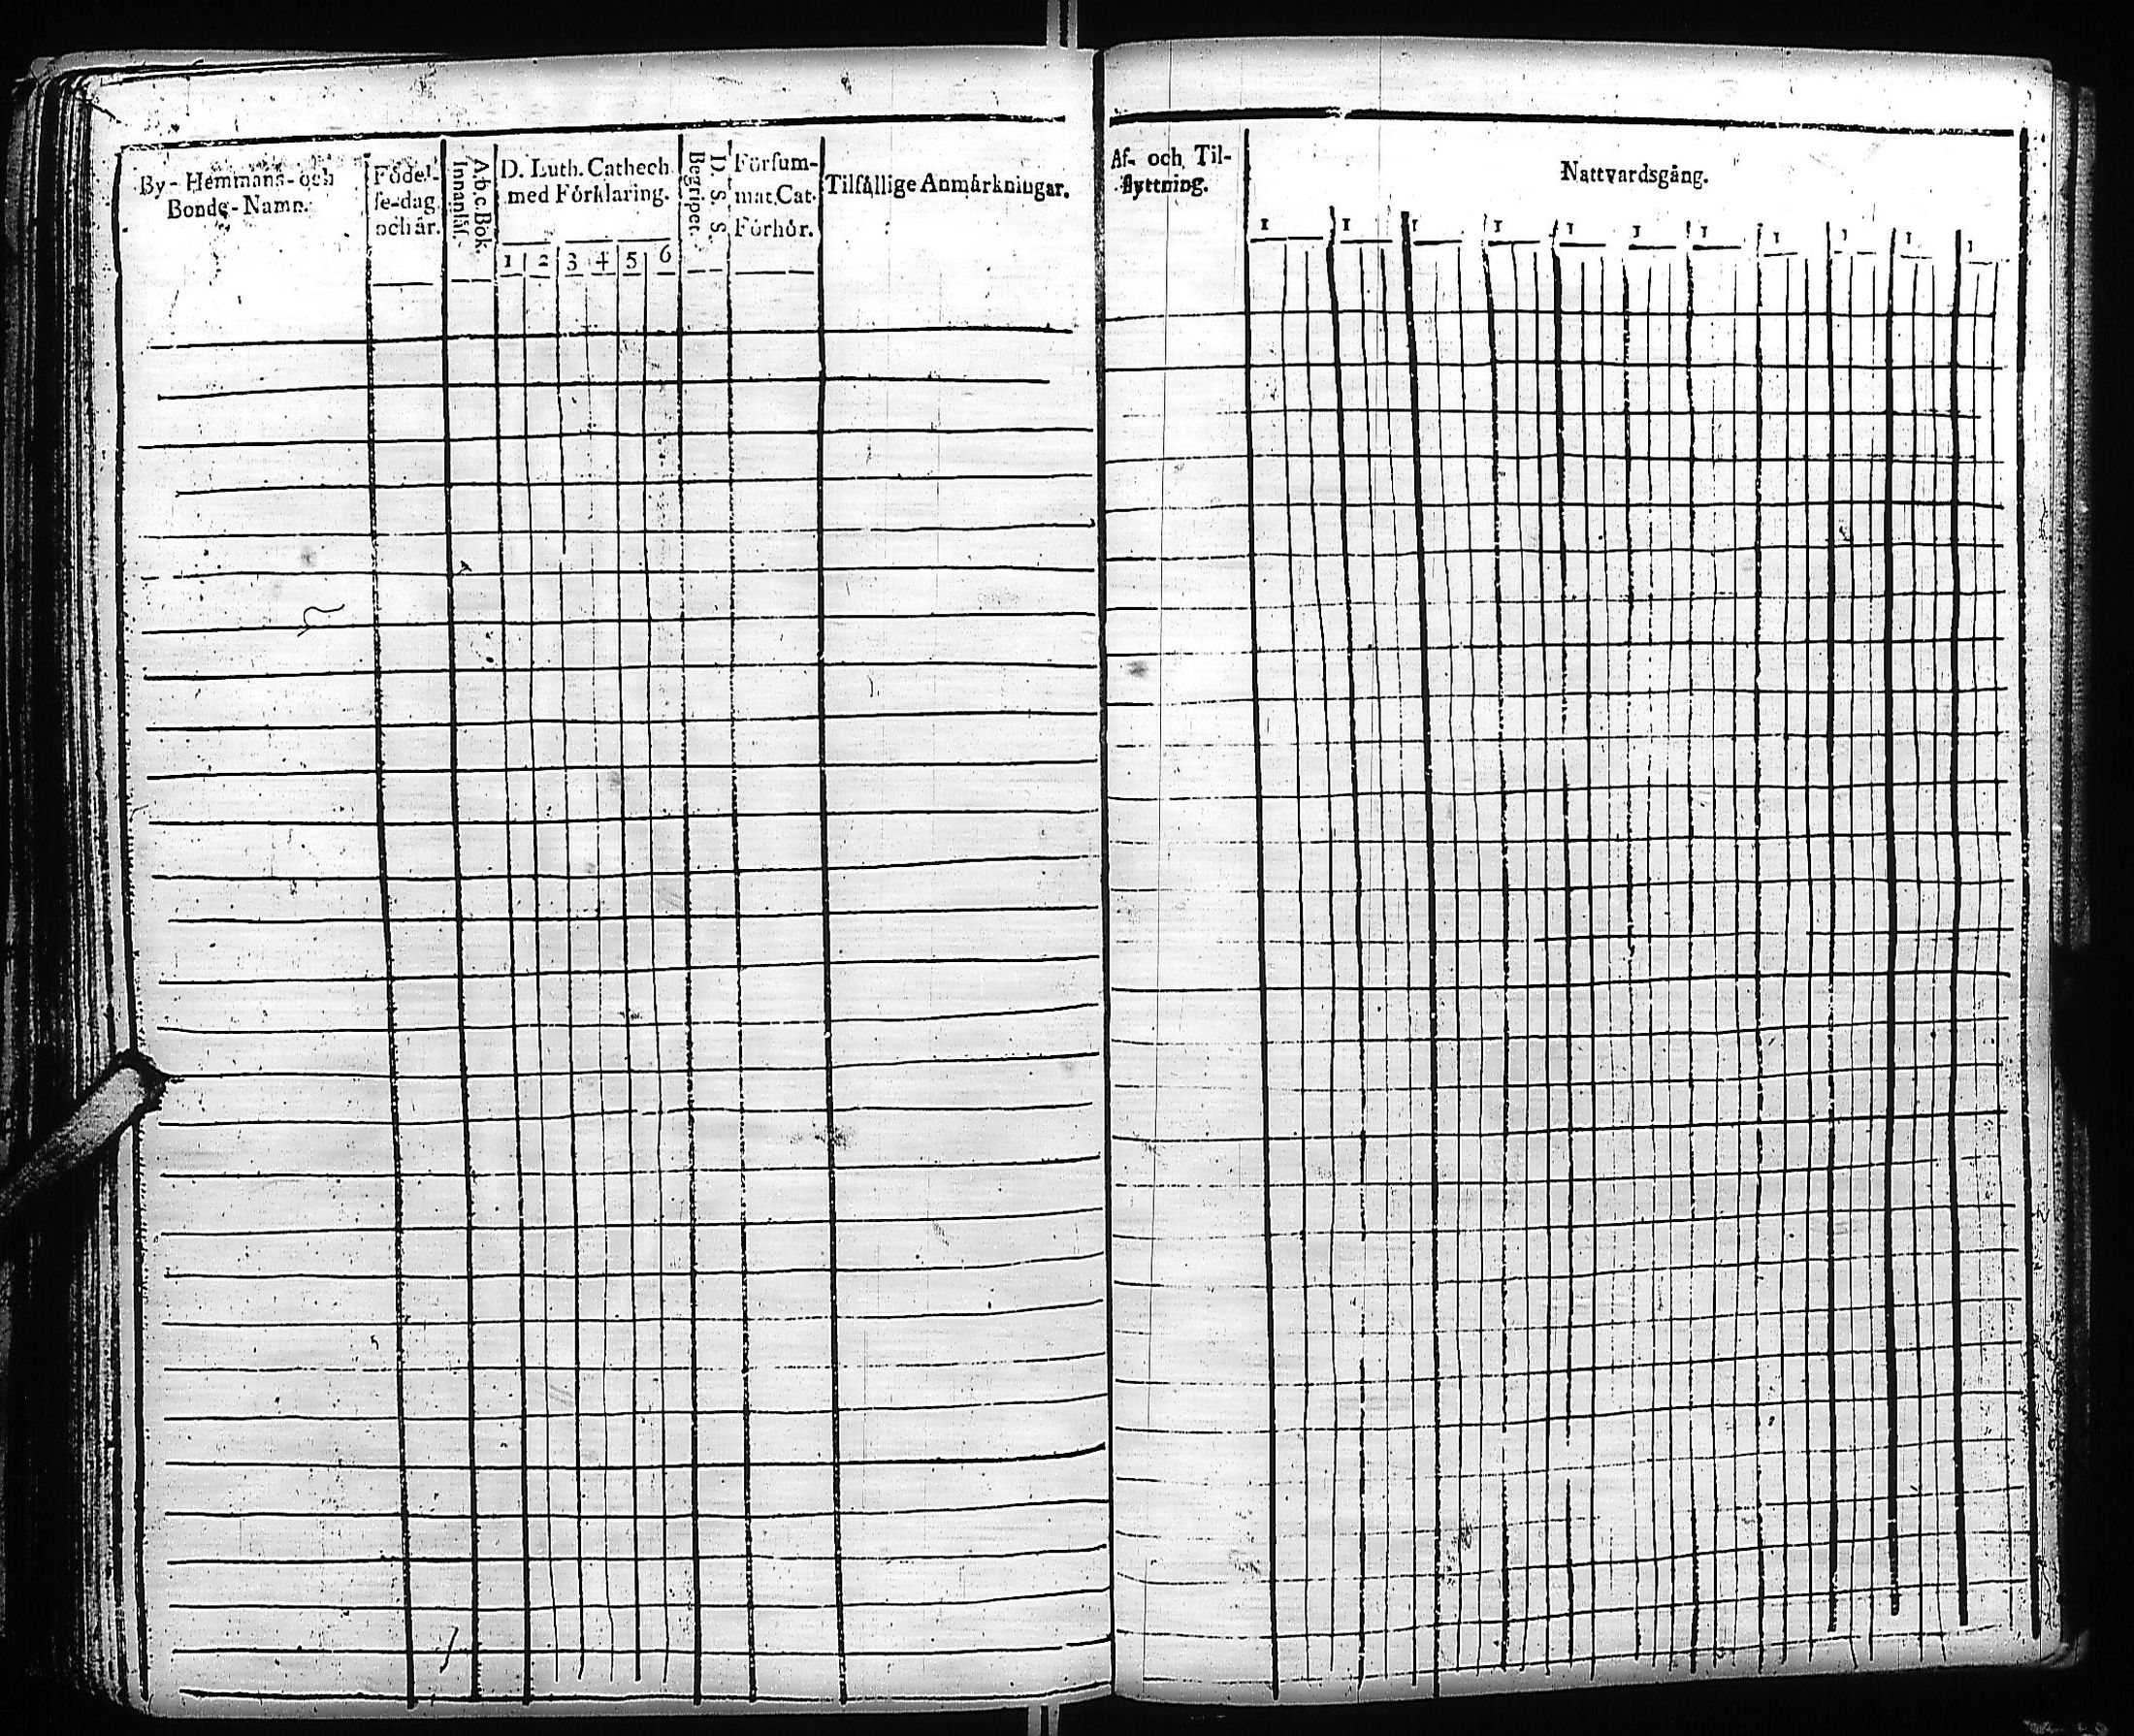 By- Hemmans- och
Bonde-Namn.
Födel-
se-dag
och år.
A.b.c. Bok.
Innanläs.
D. Luth. Cathech.
med Förklaring.
1 2 3 4 5 6
D. S. S.
Begriper.
Försum-
mat Cat.
Förhör.
Tilfällige Anmärkningar.
Af- och Til-
flyttning.
Nattvardsgång.
1 1 1 1 1 1 1 1 1 1 1